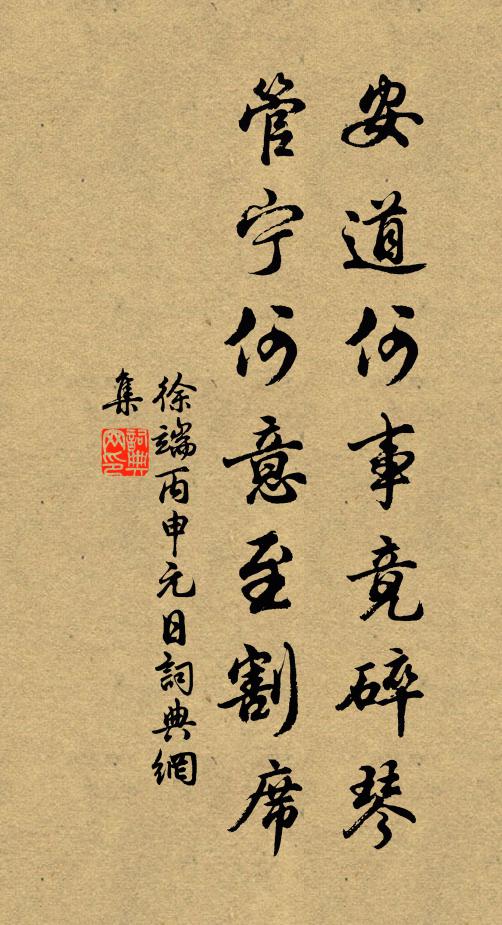 安道何事竟碎琴
管宁何意至割席
徐端丙申元日詞典網
集
詞典網印